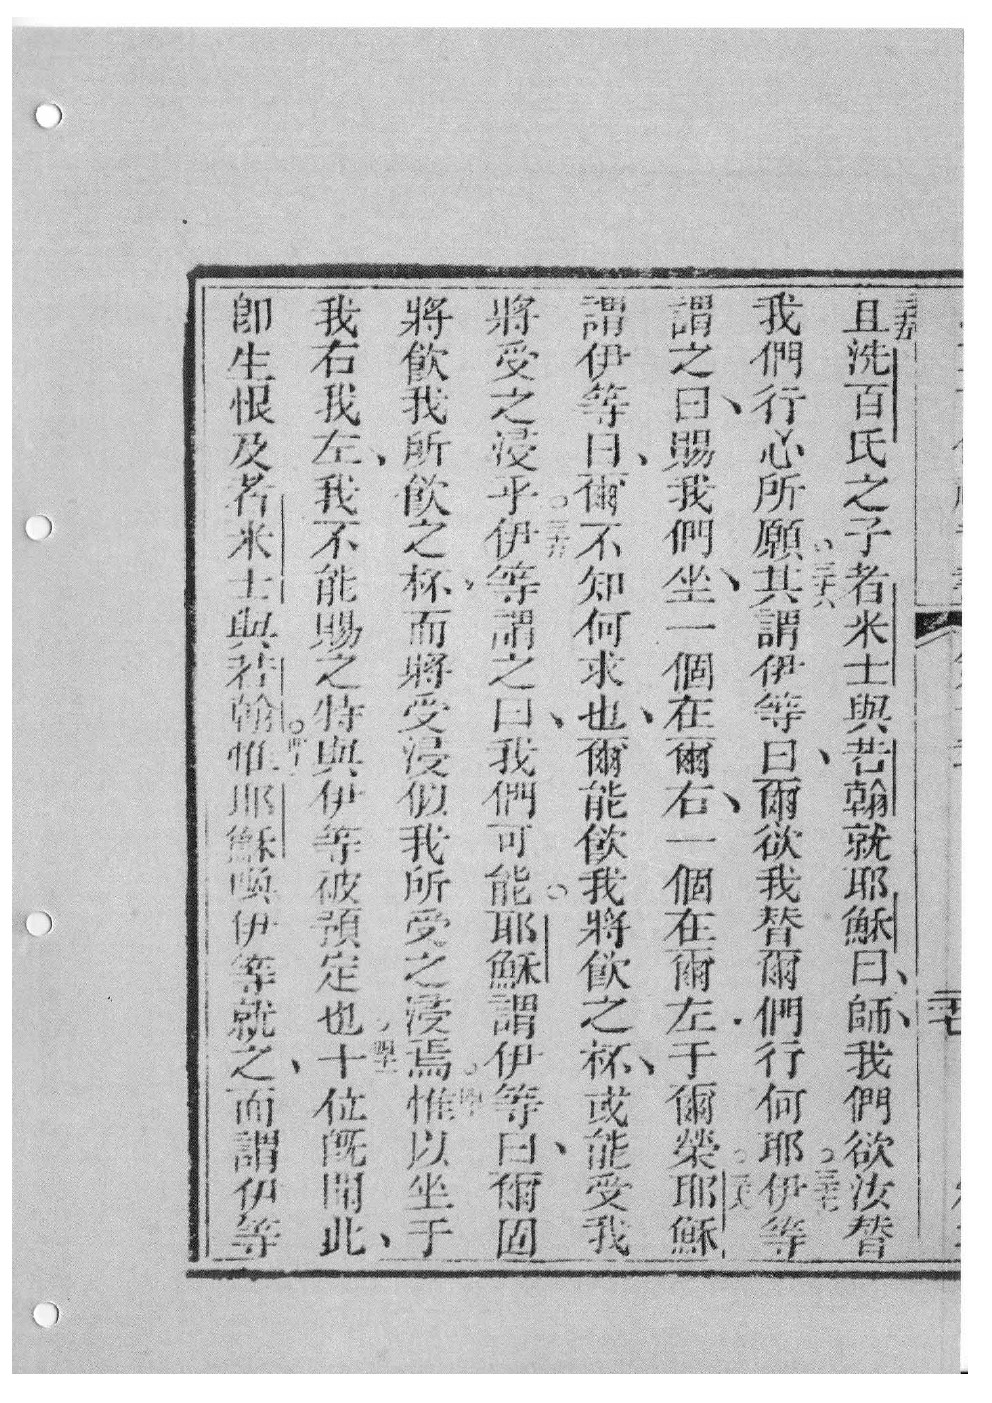 三十五且洗百氏之子者米士與若翰就耶穌曰、師、我們欲汝替
我們行心所願。三十六其謂伊等曰、爾欲我替爾們行何耶。三十七伊等
謂之曰、賜我們坐、一個在爾右、一個在爾左、于爾榮。三十八耶穌
謂伊等曰、爾不知何求也、爾能飲我將飲之杯、或能受我
將受之浸乎。三十九伊等謂之曰、我們可能。耶穌謂伊等曰、爾固
將飲我所飲之杯、而將受浸似我所受之浸焉。四十惟以坐于
我右我左、我不能賜之特與伊等被預定也。四十一十位既聞此、
即生恨及者米士與若翰。四十二惟耶穌喚伊等就之、而謂伊等